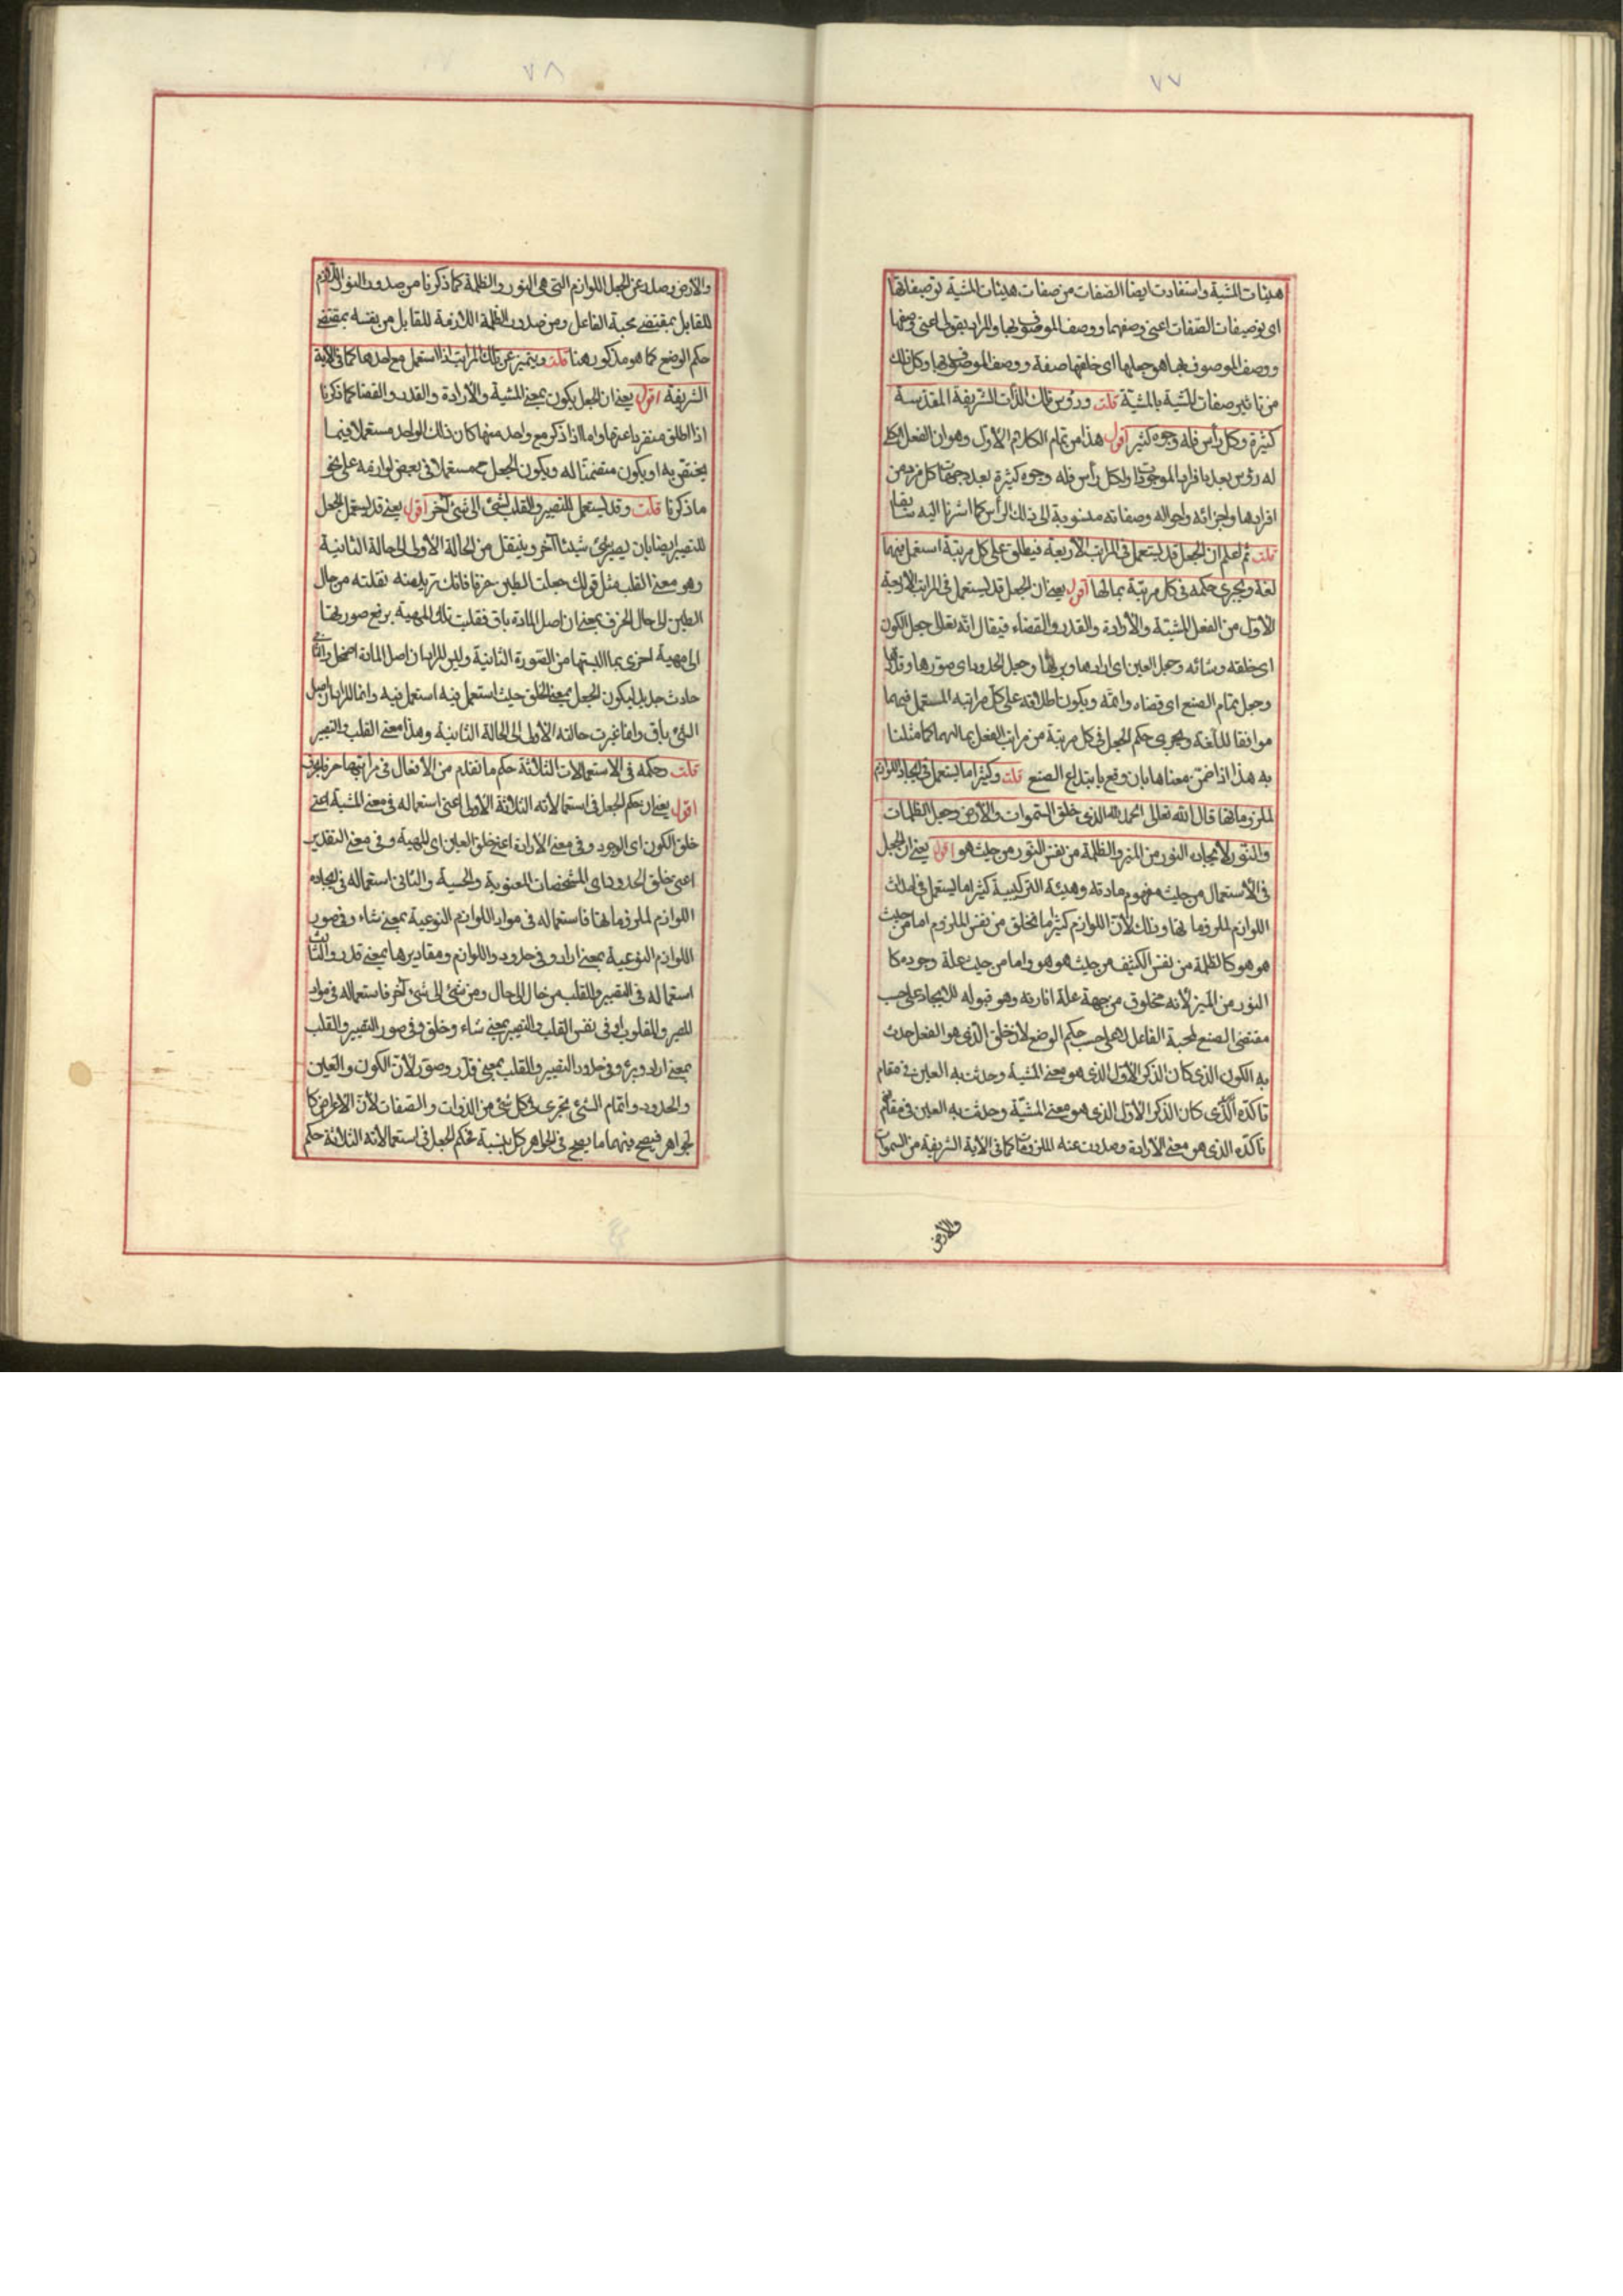 ٧٧
هيئات المشية واستفادت ايضا الصفات من صفات هيئات المشية توصيفاتها
اى توصيفات الصفات اعنى وصفهما ووصف الموصوف بها والمراد بقولى اعنى وصفها
ووصف الموصوف بها هو جعلها اى خلقها صفة ووصف الموصوف بها وكل ذلك
من تاثير صفات المشية بالمشية قلت ورؤس تلك الذات الشريفة المقدسة
كثيرة وكل رأس فله وجوه كثيرة اقول هذا من تمام الكلام الاول وهو ان الفعل الكلى
له رؤس بعدد افراد الموجودات ولكل رأس فله وجوه كثيرة بعدد جهات كل فرد من
افرادها واجزائه واحواله وصفاته منسوبة الى ذلك الرأس كما اشرنا اليه سابقا
قلت ثم اعلم ان الجعل قد يستعمل فى المراتب الاربعة فيطلق على كل مرتبة استعمل فيها
لغة ويجرى حكمه فى كل مرتبة بما لها اقول يعنى ان الجعل قد يستعمل فى المراتب الاربعة
الاول من الفعل المشية والأرادة والقدر والقضاء فيقال انه تعالى جعل الكون
اى خلقه وشائه وجعل العين اى ارادها وبرئها وجعل الحدود اى صورها وقدرها
وجعل تمام الصنع اى قضاه واتمه ويكون اطلاقه على كل مراتبه المستعمل فيهما
موافقا للغة ويجرى حكم الجعل فى كل مرتبة من مراتب الفعل بما لهما كما مثلنا
به هذا اذا ضمن معناها بان وقع بابتداع الصنع قلت وكثيرا ما يستعمل فى ايجاد اللوازم
لملزوماتها قال الله تعالى الحمد لله الذى خلق السموات والأرض وجعل الظلمات
والنور لايجاده النور من المنير والظلمة من نفس النور من حيث هو اقول يعنى ان الجعل
فى الأستعمال من حيث مفهوم مادته وهيئته التركيبية كثيرا ما يستعمل فى احداث
اللوازم لملزوماتها وذلك لأن اللوازم كثيرا ما تخلق من نفس الملزوم اما من حيث
هو هو كالظلمة من نفس الكثيف من حيث هو هو واما من حيث علة وجوده كا
النور من المنير لأنه مخلوق من جهة علة انارته وهو قبوله للايجاد على حسب
مقتضى الصنع لمحبة الفاعل لا على حسب حكم الوضع لان خلق الذى هو الفعل حدث
به الكون الذى كان الذكر الأول الذى هو معنى المشية وحدثت به العين فى مقام
تاكده الذى كان الذكر الأول الذى هو معنى المشية وحدثت به العين فى مقام
تاكده الذى هو معنى الارادة وصدرت عنه الملزومات كما فى الآية الشريفة من السموات
والأرض
٧٨
والارض وصدر عن الجعل اللوازم التى هى النور والظلمة كما ذكرنا من صدور النور اللازم
للقابل بمقتضى محبة الفاعل ومن صدور الظلمة اللازمة للقابل من نفسه بمقتضى
حكم الوضع كما هو مذكور هنا قلت ويتميز عن تلك المراتب اذا استعمل مع احدها كما فى الآية
الشريفة اقول يعنى ان الجعل يكون بمعنى المشية والأرادة والقدر والقضا كما ذكرنا
اذا اطلق منفردا عنها واما اذا ذكر مع واحد منها كان ذلك الواحد مستعملا فيما
يختص به او يكون متضمنا له ويكون الجعل ح مستعملا فى بعض لوازمه على نحو
ما ذكرنا قلت وقد يستعمل للتصيير والقلب لشئ الى شئ آخر اقول يعنى قد يستعمل الجعل
للتصيير ايضا بان يصير شئ شيئا آخر وينتقل من الحالة الأولى الى حالة الثانية
وهو معنى القلب مثل قولك جعلت الطين خزفا فانك تريد منه نقلته من حال
الطين الى حال الخزف بمعنى ان اصل المادة باق فقلبت تلك المهية برفع صورتها
الى مهية اخرى بما البستها من الصورة الثانية وليس المراد ان اصل المادة اضمحل والثانى
حادث جديد ليكون الجعل بمعنى الخلق حيث استعمل فيه استعمل فيه وانما المراد ان اصل
الشئ باق وانما غيرت حالته الأولى الى الحالة الثانية وهذا معنى القلب والتصيير
قلت حكمه فى الاستعمالات الثلاثة حكم ما تقدم من الأفعال فى مراتبها حرفا بحرف
اقول يعنى ان حكم الجعل فى استعمالاته الثلاثة الأولى اعنى استعماله فى معنى المشية اعنى
خلق الكون اى الوجود وفى معنى الأرادة اعنى خلق العين اى المهية وفى معنى التقدير
اعنى خلق الحدود اى المشخصات المعنوية والحسية والثانى استعماله فى ايجاد
اللوازم لملزوماتها فاستعماله فى مواد اللوازم النوعية بمعنى شاء وفى صور
اللوازم النوعية بمعنى اراد وفى حدود اللوازم ومقاديرها بمعنى قدر والثالث
استعماله فى التصيير والقلب من حال الى حال ومن شئ الى شئ آخر فاستعماله فى مواد
المصير والمقلوب او فى نفس القلب والتصيير بمعنى شاء وخلق وفى صور التصيير والقلب
بمعنى اراد وبرء وفى حدود التصيير والقلب بمعنى قدر وصور لأن الكون والعين
والحدود واتمام الشئ يجرى فى كل شئ من الذوات والصفات لأن الاعراض كا
لجواهر فيصح فيهما ما يصح فى الجواهر كل بنسبة فحكم الجعل فى استعمالاته الثلاثة حكم